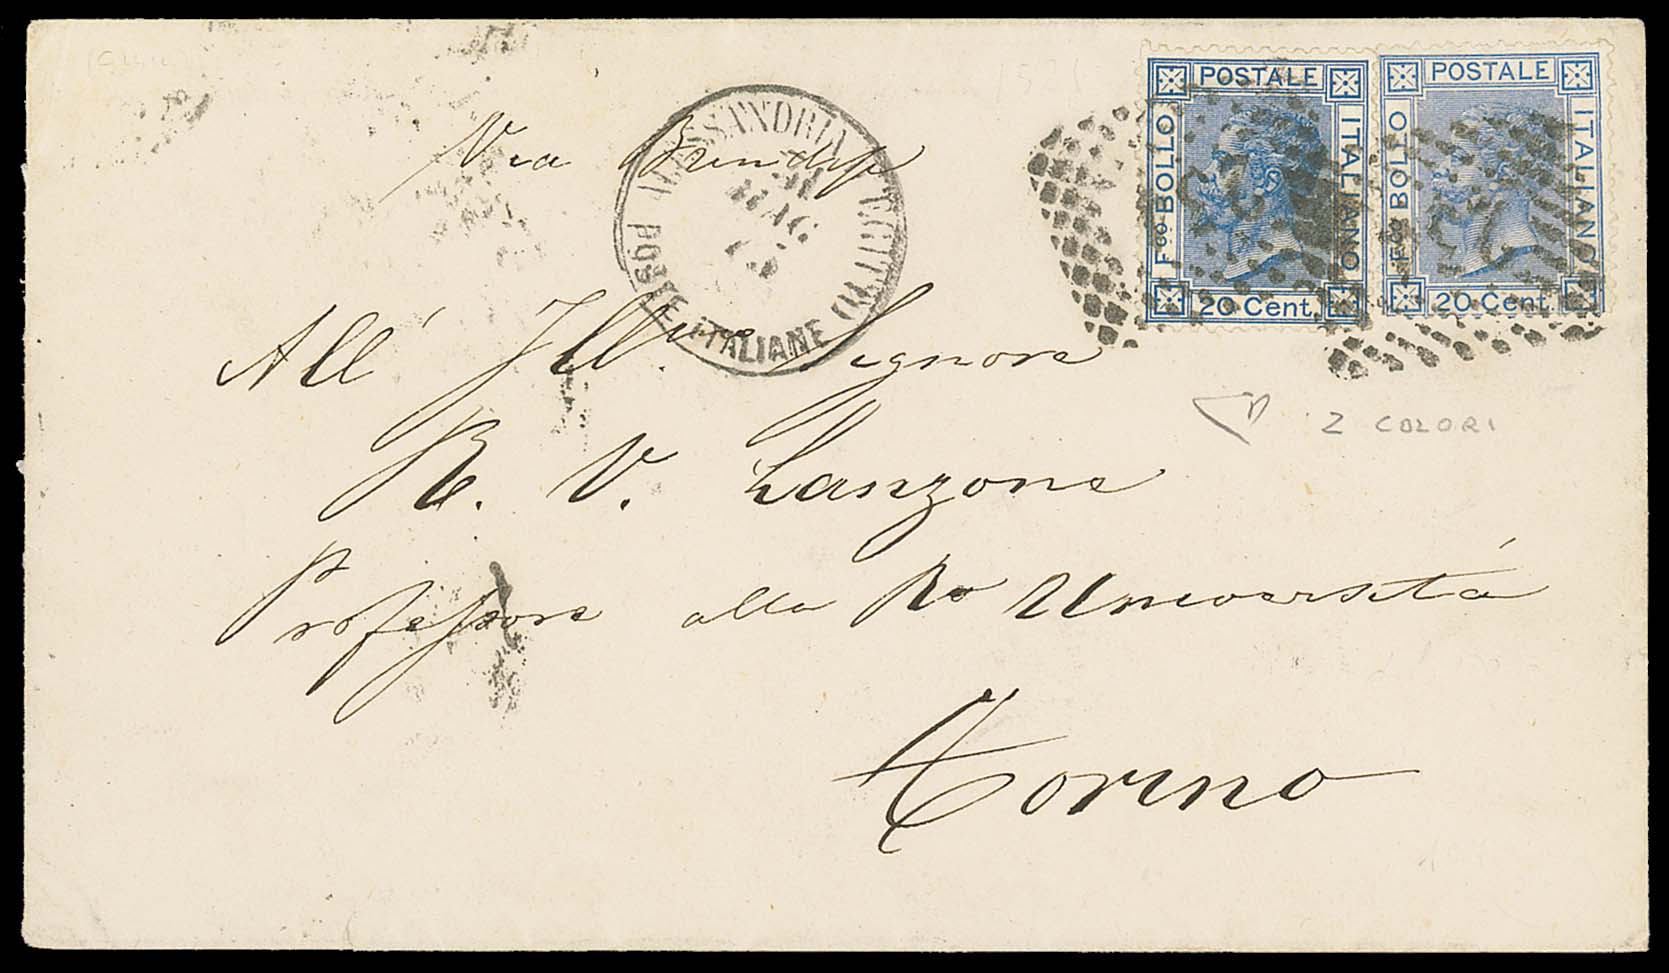 Via Brindisi
ALESSANDRIA EGITTO
POSTE ITALIANE
MAG
POSTALE
Fco BOLLO
ITALIANO
20 Cent.
POSTALE
Fco BOLLO
ITALIANO
20 Cent.
2 COLORI
All' Ill. Signore
R. V. Lanzone
Professore alla Ra Università
Torino